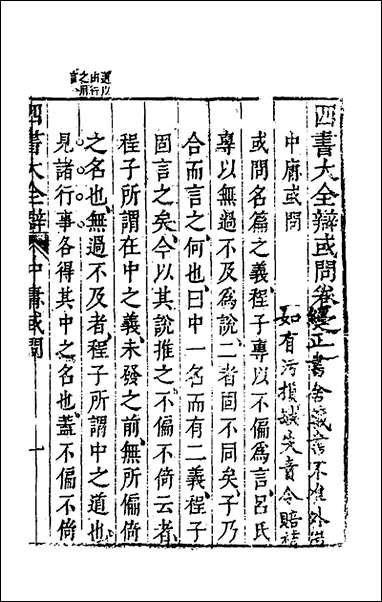 四書大全辯或問卷
經正書舍藏書不准外借
如有污損缺失責令賠補
中庸或問
或問名篇之義程子專以不偏為言呂氏
專以無過不及為說二者固不同矣子乃
合而言之何也曰中一名而有二義程子
固言之矣今以其說推之不偏不倚云者
程子所謂在中之義未發之前無所偏倚
之名也無過不及者程子所謂中之道也
見諸行事各得其中之名也蓋不偏不倚
四書大全辯 中庸或問 一